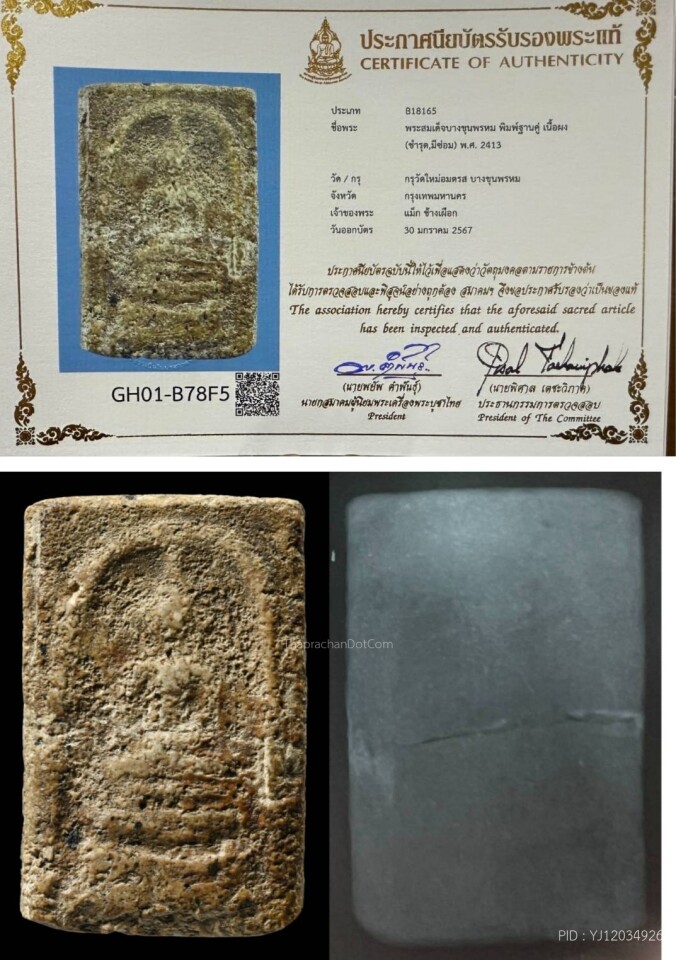 ประกาศนียบัตรรับรองพระแท้
CERTIFICATE OF AUTHENTICITY
ประเภท B18165
ชื่อพระ พระสมเด็จบางขุนพรหม พิมพ์ฐานคู่ เนื้อผง
(ชำรุด,มีซ่อม) พ.ศ. 2413
วัด / กรุ กรุวัดใหม่อมตรส บางขุนพรหม
จังหวัด กรุงเทพมหานคร
เจ้าของพระ แม็ก ช้างเผือก
วันออกบัตร 30 มกราคม 2567
ประกาศนียบัตรฉบับนี้ให้ไว้เพื่อแสดงว่าวัตถุมงคลตามรายการข้างต้น
ได้รับการตรวจสอบและพิสูจน์อย่างถูกต้อง สมาคมฯ จึงขอประกาศรับรองว่าเป็นของแท้
The association hereby certifies that the aforesaid sacred article
has been inspected and authenticated.
GH01-B78F5
(นายพยัพ คำพันธุ์)
นายกสมาคมผู้นิยมพระเครื่องพระบูชาไทย
President
(นายพิศาล เตชะวิภาค)
ประธานกรรมการตรวจสอบ
President of The Committee
ThaprachanDotCom
PID : YJ12034926